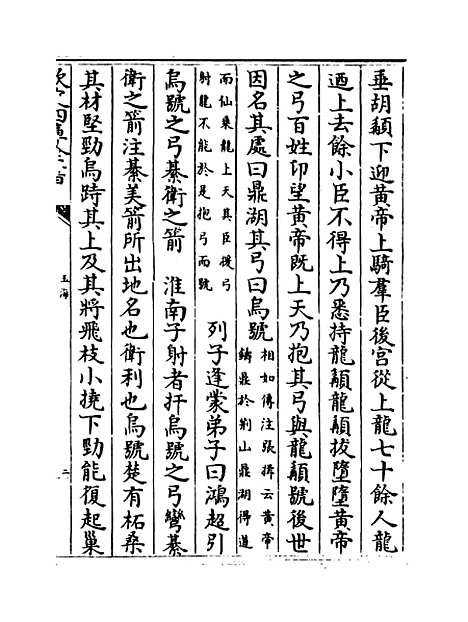 垂胡顄下迎黃帝上騎羣臣後宮從上龍七十餘人龍
迺上去餘小臣不得上乃悉持龍顄龍顄拔墮墮黃帝
之弓百姓卬望黃帝既上天乃抱其弓與龍顄號後世
因名其處曰鼎湖其弓曰烏號
相如傳注張揖云黃帝
鑄鼎於荆山鼎湖得道
而仙乗龍上天其臣援弓
射龍不能於是抱弓而號
列子逢蒙弟子曰鴻超引
烏號之弓綦衛之箭　淮南子射者扞烏號之弓彎綦
衛之箭注綦美箭所出地名也衛利也烏號楚有柘桑
其材堅勁烏跱其上及其將飛枝小撓下勁能復起巢
欽定四庫全書
玉海
二